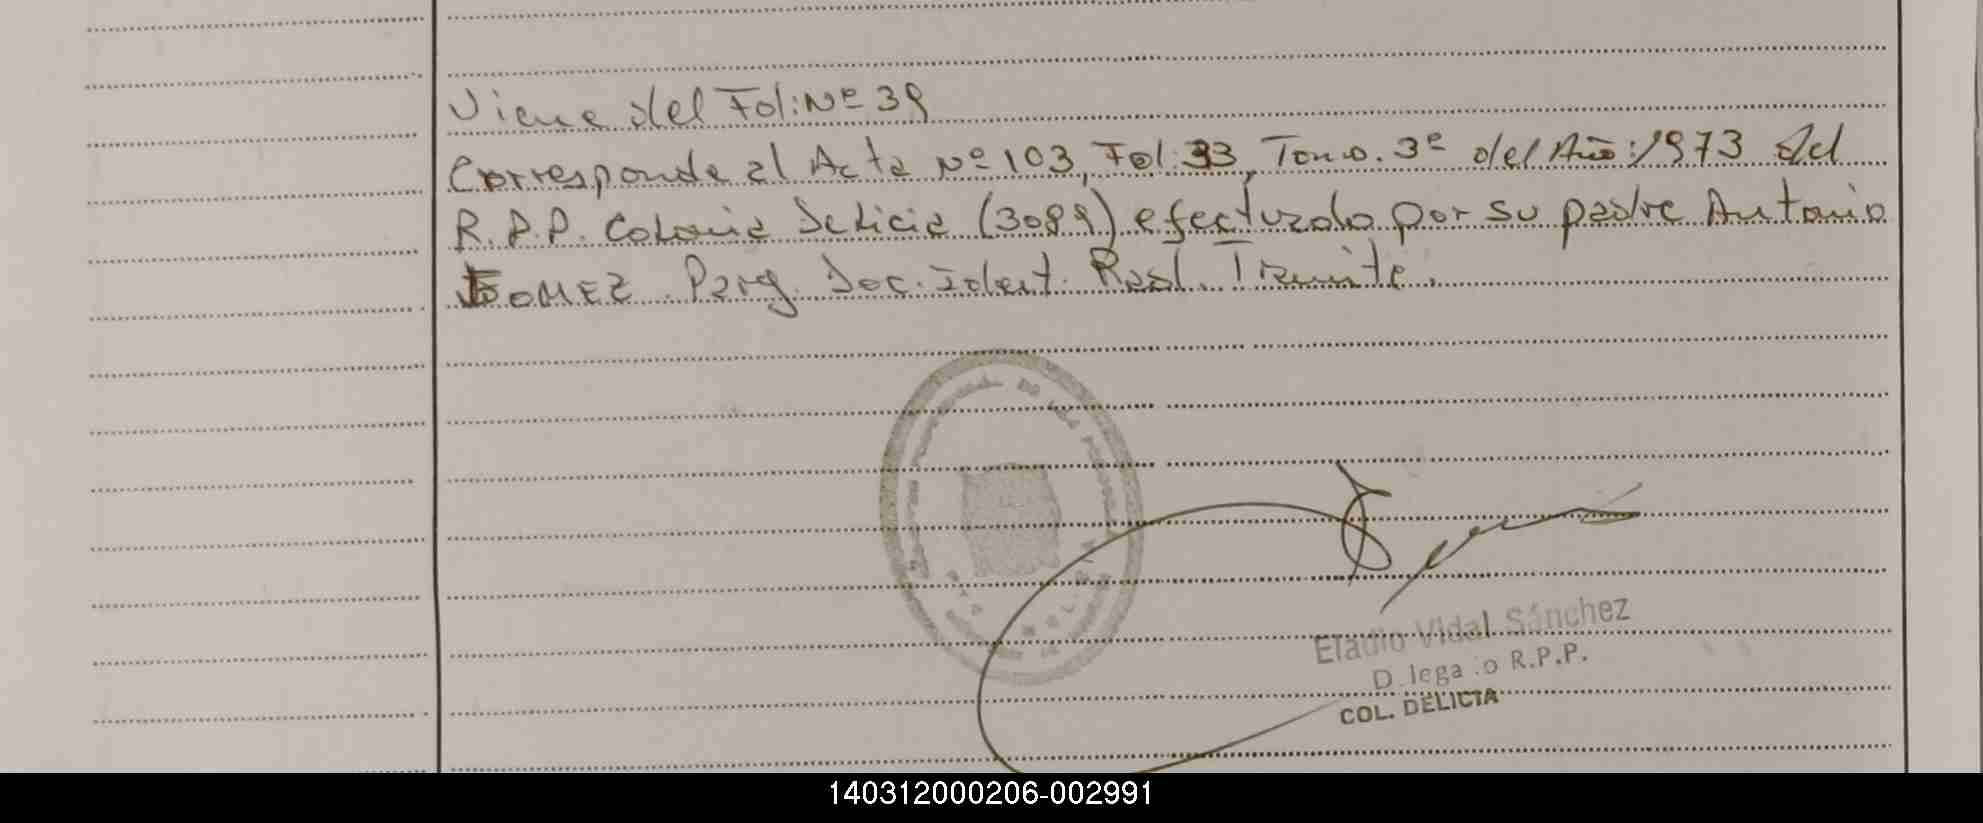 Viene del Fol: Nº 39
Corresponde al Acta Nº 103, Fol: 33, Tomo. 3º del Año: 1973 del
R.P.P. Colonia Delicia (3089) efectuado por su padre Antonio
GOMEZ. Parg. Doc. Ident. Real. Tramite.
Eladio Vidal Sánchez
D lega o R.P.P.
COL. DELICIA
140312000206-002991